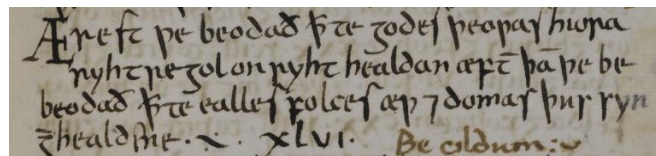 Ærest ƿe beodað ꝥte godes þeoƿas hiora
ryhtregol on ryht healdan æft̄ þā ƿe be
beodað ꝥte ealles folces æƿ ⁊ domas þus syn
g̅healdne. XLVI. Be cildum: